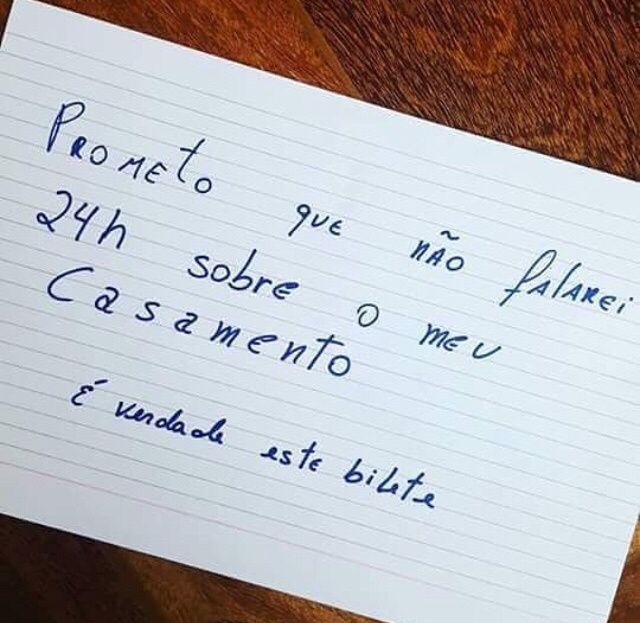 PROMETO que NÃO falarei
24h sobre o meu
Casamento
É verdade este bilete